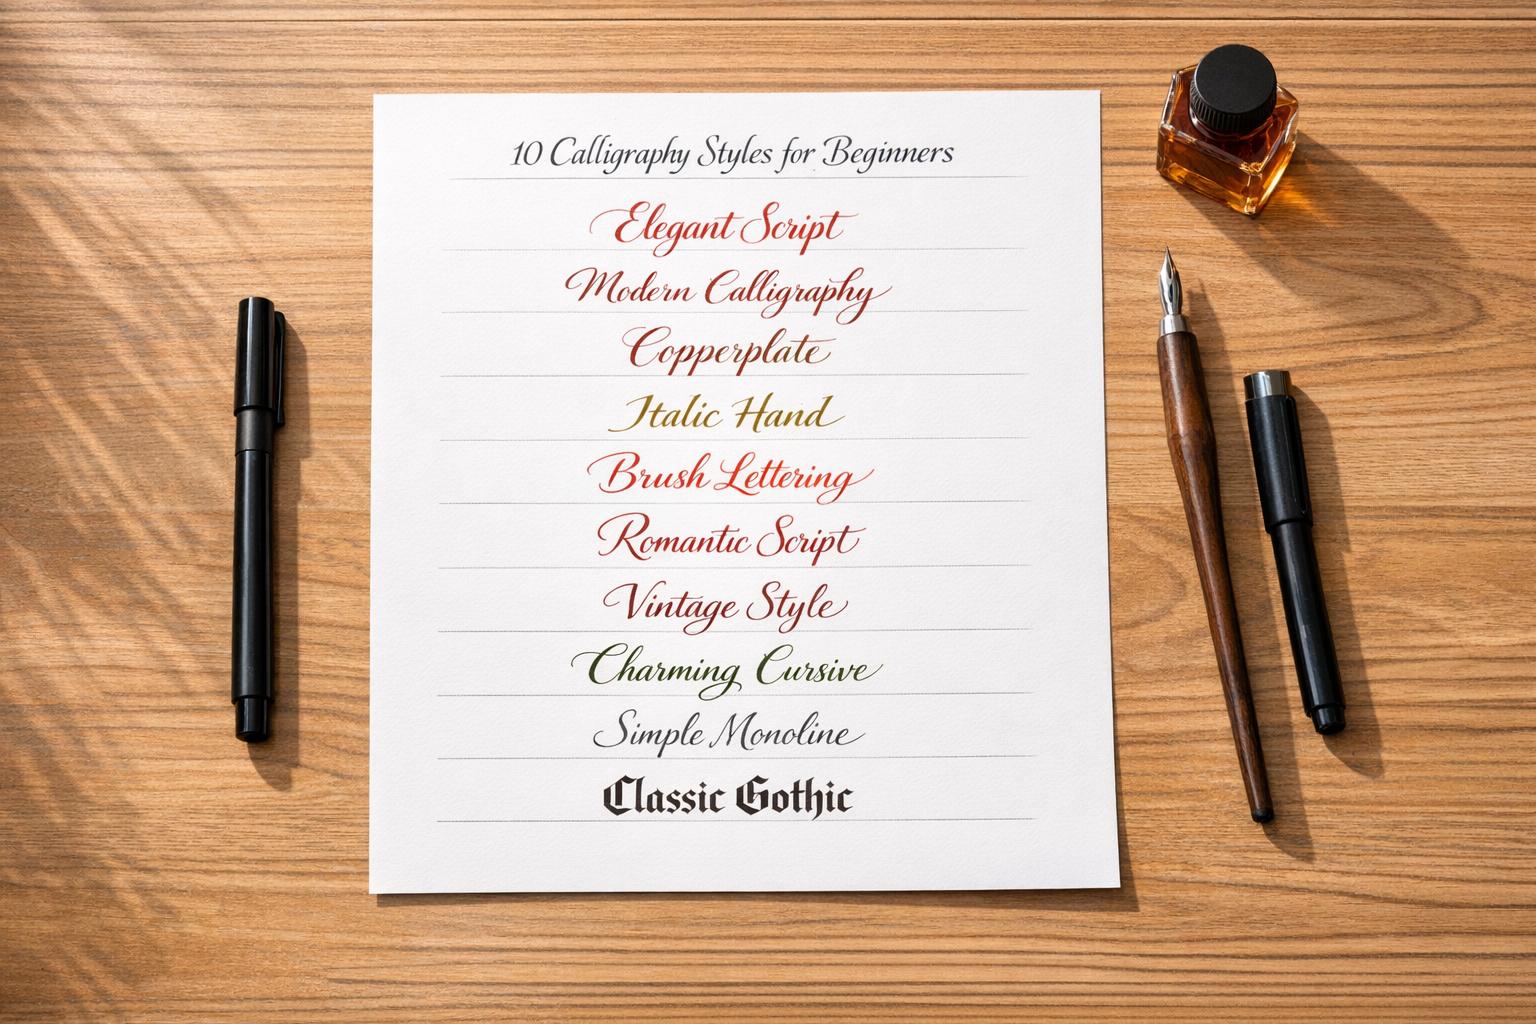 10 Calligraphy Styles for Beginners
Elegant Script
Modern Calligraphy
Copperplate
Italic Hand
Brush Lettering
Romantic Script
Vintage Style
Charming Cursive
Simple Monoline
Classic Gothic